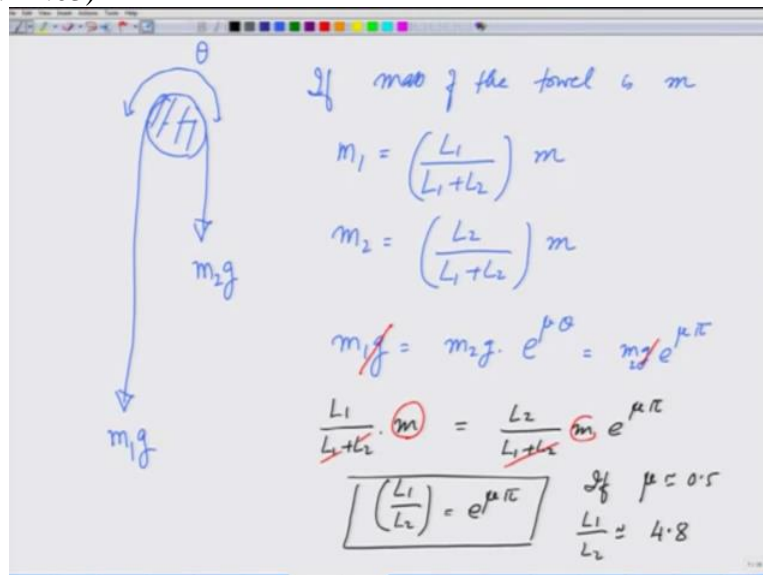 θ
If mass of the towel is m
m₁ = (L₁ / (L₁+L₂)) m
m₂ = (L₂ / (L₁+L₂)) m
m₂g
m₁g = m₂g. e^μθ = m₂g e^μπ
m₁g
L₁ / (L₁+L₂) . m = L₂ / (L₁+L₂) m e^μπ
(L₁ / L₂) = e^μπ
If μ = 0.5
L₁ / L₂ ≈ 4.8